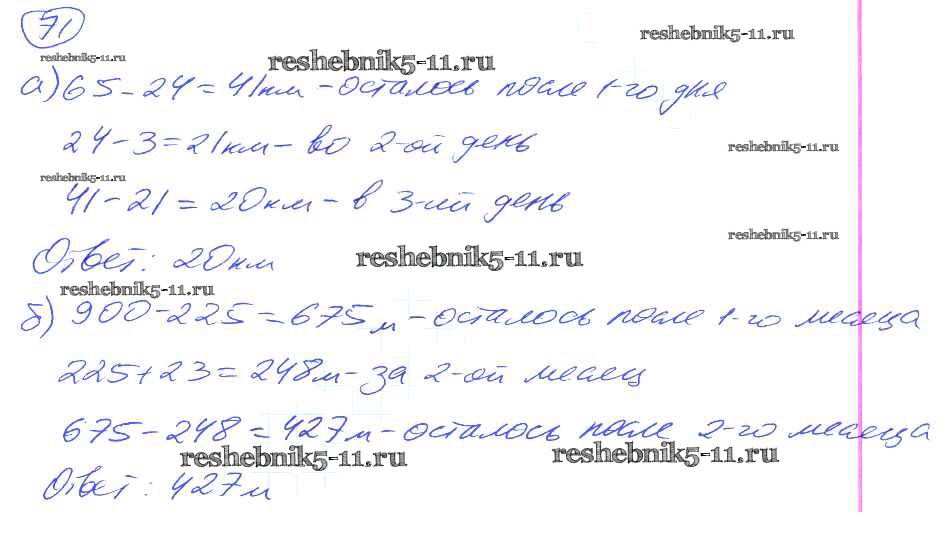 71
reshebnik5-11.ru
reshebnik5-11.ru
reshebnik5-11.ru
а) 65 - 24 = 41км - осталось после 1-го дня
24 - 3 = 21км - во 2-ой день
reshebnik5-11.ru
reshebnik5-11.ru
41 - 21 = 20км - в 3-ий день
reshebnik5-11.ru
Ответ: 20км
reshebnik5-11.ru
reshebnik5-11.ru
б) 900 - 225 = 675м - осталось после 1-го месяца
225 + 23 = 248м - за 2-ой месяц
675 - 248 = 427м - осталось после 2-го месяца
reshebnik5-11.ru
reshebnik5-11.ru
Ответ: 427м